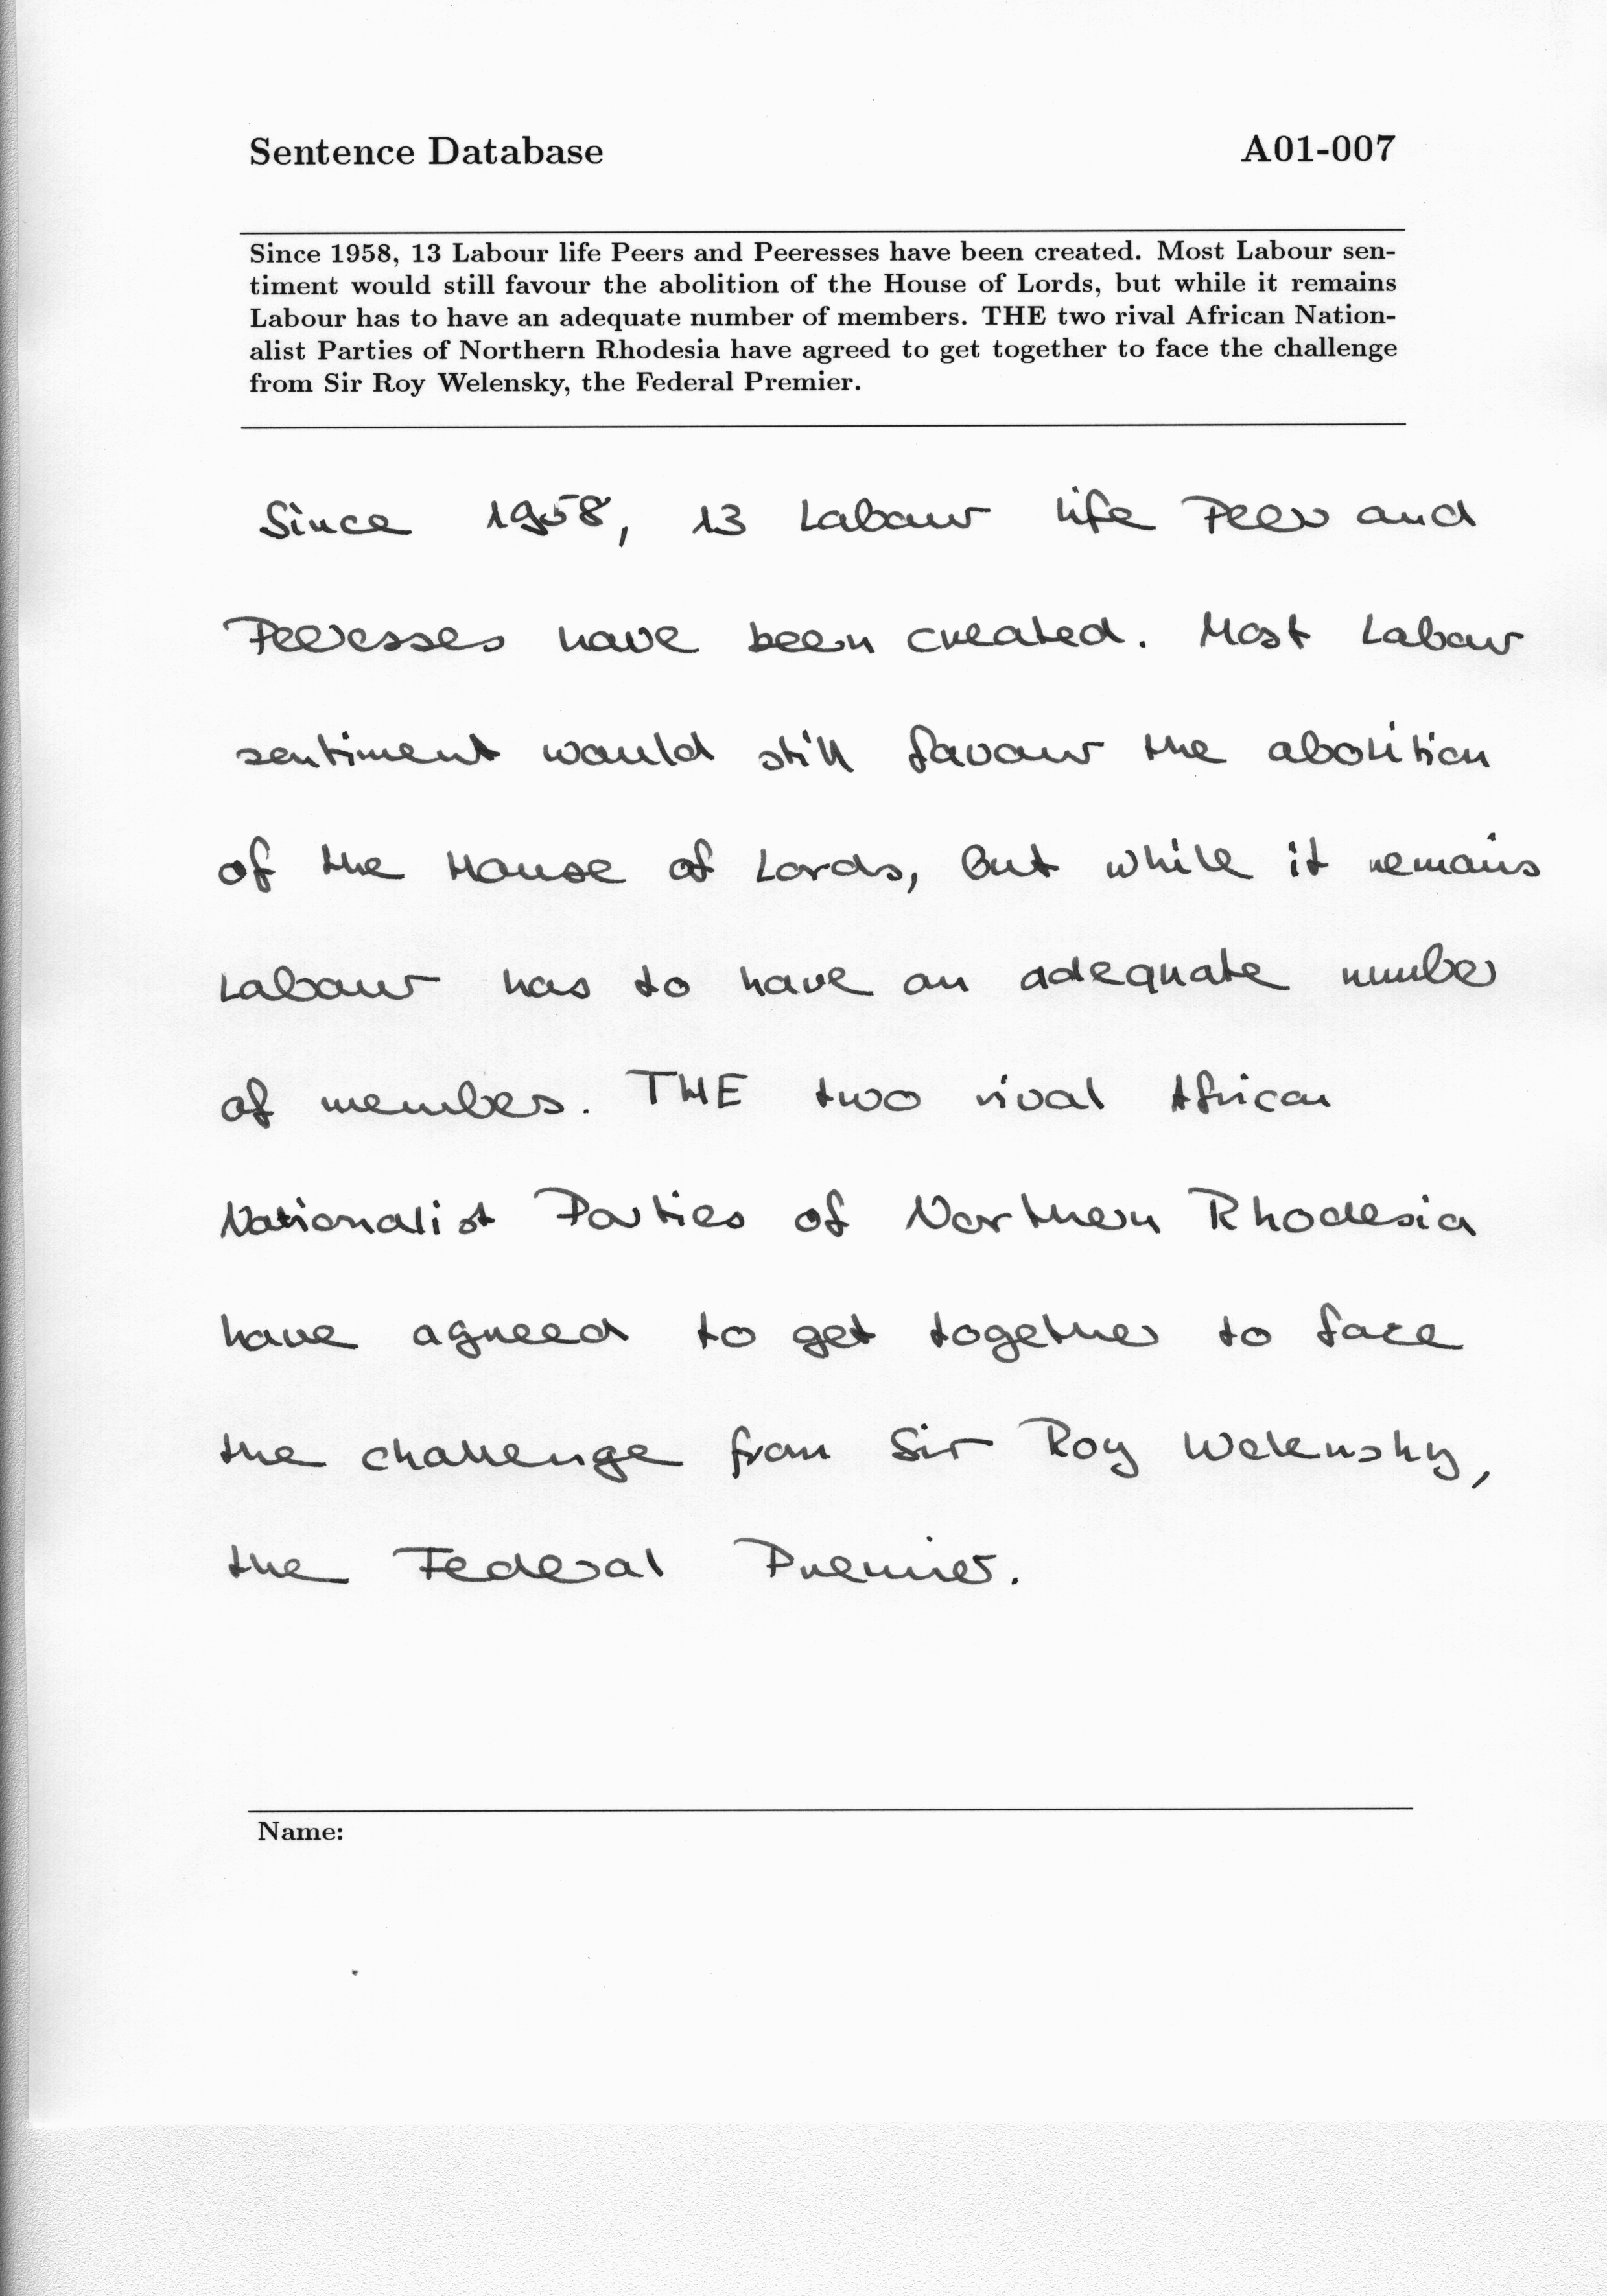 Sentence Database A01-007
Since 1958, 13 Labour life Peers and Peeresses have been created. Most Labour sen-
timent would still favour the abolition of the House of Lords, but while it remains
Labour has to have an adequate number of members. THE two rival African Nation-
alist Parties of Northern Rhodesia have agreed to get together to face the challenge
from Sir Roy Welensky, the Federal Premier.
Since 1958, 13 Labour life Peers and
Peeresses have been created. Most Labour
sentiment would still favour the abolition
of the House of Lords, but while it remains
Labour has to have an adequate number
of members. THE two rival African
Nationalist Parties of Northern Rhodesia
have agreed to get together to face
the challenge from Sir Roy Welensky,
the Federal Premier.
Name: